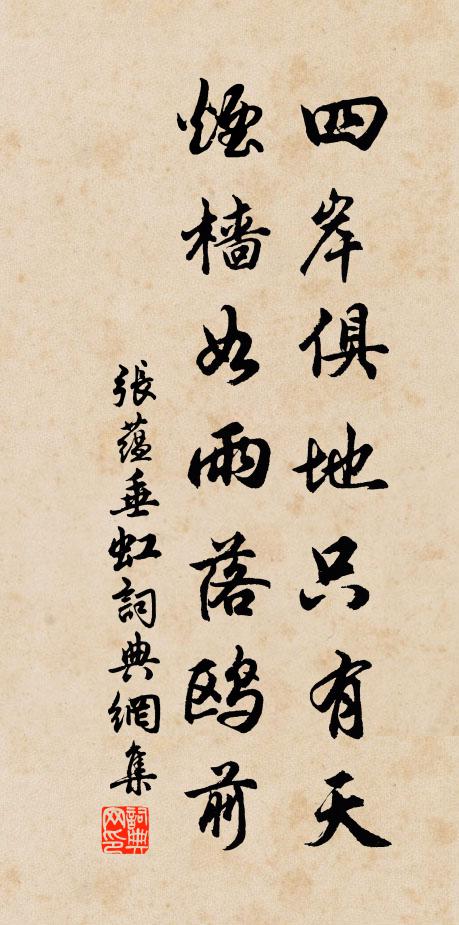 四岸俱地只有天
煙檣如雨落鷗前
張蘊垂虹詞典網集
詞典網印